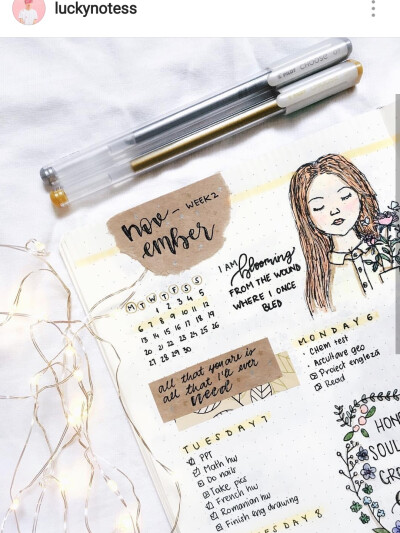 luckynotess
PILOT CHOOSE 07
nov – WEEK 2
ember
I AM blooming
FROM THE WOUND
WHERE I ONCE
BLED
M T W T F S S
1 2 3 4 5
6 7 8 9 10 11 12
13 14 15 16 17 18 19
20 21 22 23 24 25 26
27 28 29 30
all that you are is
all that i'll ever
need
MONDAY 6
Chem test
Acuilave geo
Project engleza
Read
TUESDAY 7
PPT
Math hw
Do nails
Take pics
French hw
Romanian hw
Finish eng drawing
SDAY 8
HON
SOUL
GR